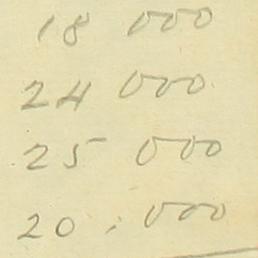 18 000
24 000
25 000
20. 000